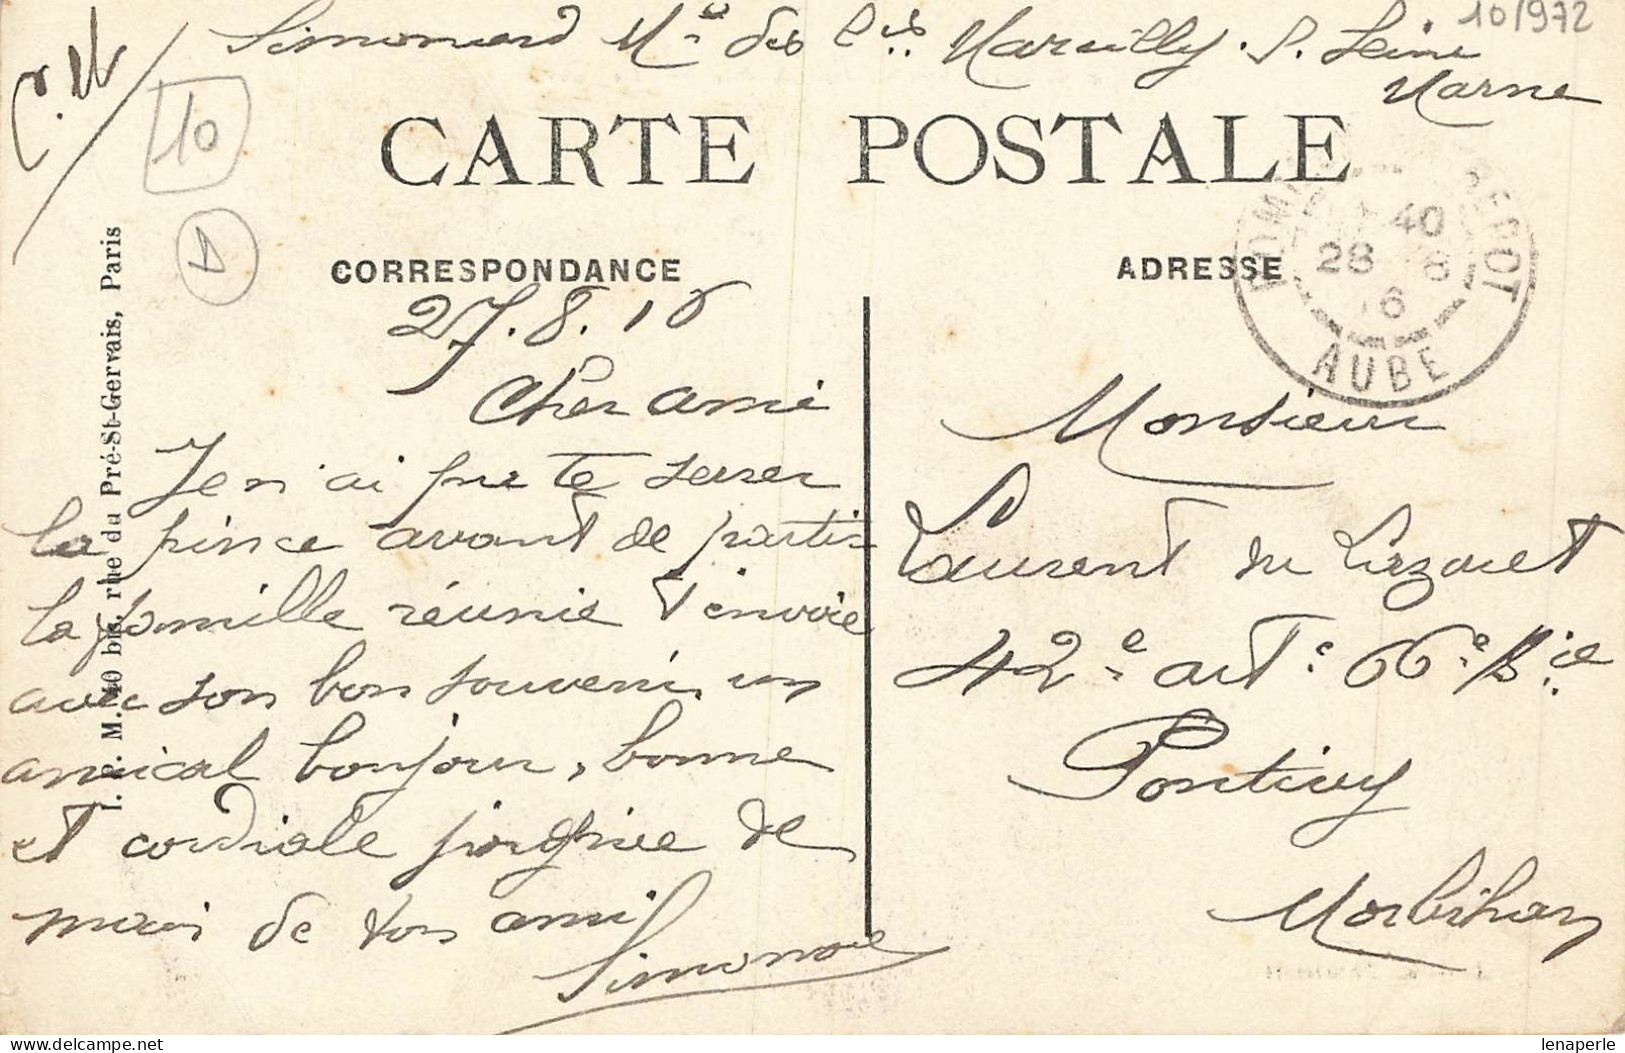 10/972
Simonard Md des Marcilly s. Seine
Marne
10
A
CARTE POSTALE
CORRESPONDANCE
ADRESSE
ROMILLY DEPOT
40
28 8
16
AUBE
27.8.16
Cher ami
Je n'ai pu te serrer
la pince avant de partir
la famille réunie t'envoie
avec son bon souvenir un
amical bonjour, bonne
et cordiale poignée de
main de ton ami
Simonard
Monsieur
Laurent du Lazaret
42e art.e 66e Bie
Pontivy
Morbihan
I. P. M. 40 bis, rue du Pré-St-Gervais, Paris
lenaperle